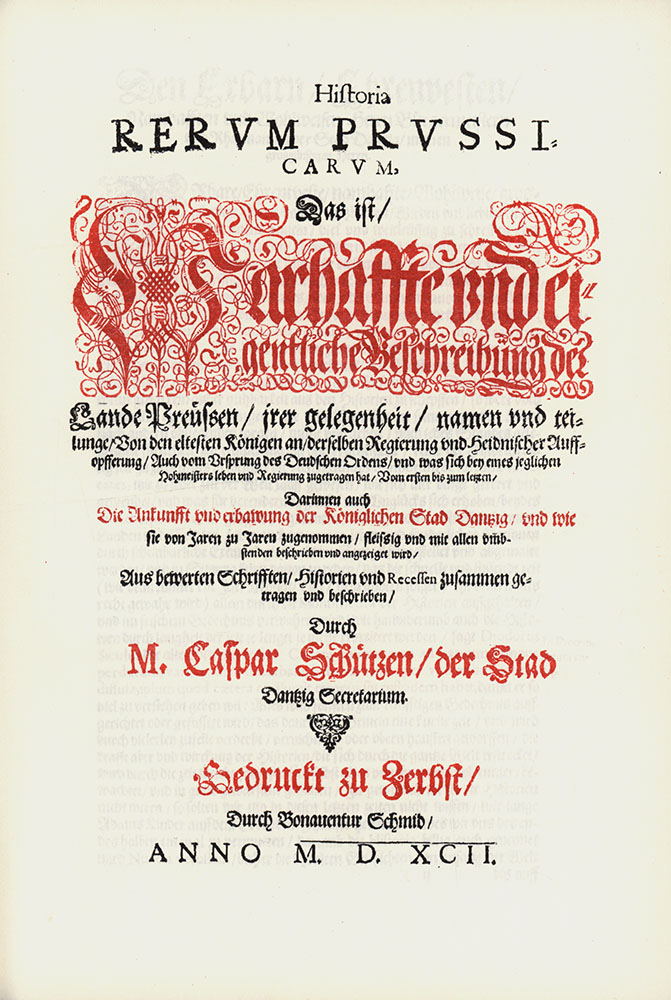 Hiſtoria
RERVM PRVSSI-
CARVM,
Das iſt/
Warhaffte vnd ei-
gentliche Beſchreibung der
Lande Preuſſen/ jrer gelegenheit/ namen vnd tei-
lunge/ Von den elteſten Königen an/ derſelben Regierung vnd Heidniſcher Auff-
opfferung/ Auch vom Vrſprung des Deudſchen Ordens/ vnd was ſich bey eines jeglichen
Hohmeiſters leben vnd Regierung zugetragen hat/ Vom erſten bis zum letzten/
Darinnen auch
Die Ankunfft vnd erbawung der Königlichen Stad Dantzig/ vnd wie
ſie von Jaren zu Jaren zugenommen/ fleiſsig vnd mit allen vmb-
ſtenden beſchrieben vnd angezeiget wird/
Aus bewerten Schrifften/ Hiſtorien vnd Receſſen zuſammen ge-
tragen vnd beſchrieben/
Durch
M. Caſpar Schützen/ der Stad
Dantzig Secretarium.
Gedruckt zu Zerbſt/
Durch Bonauentur Schmid/
ANNO M. D. XCII.